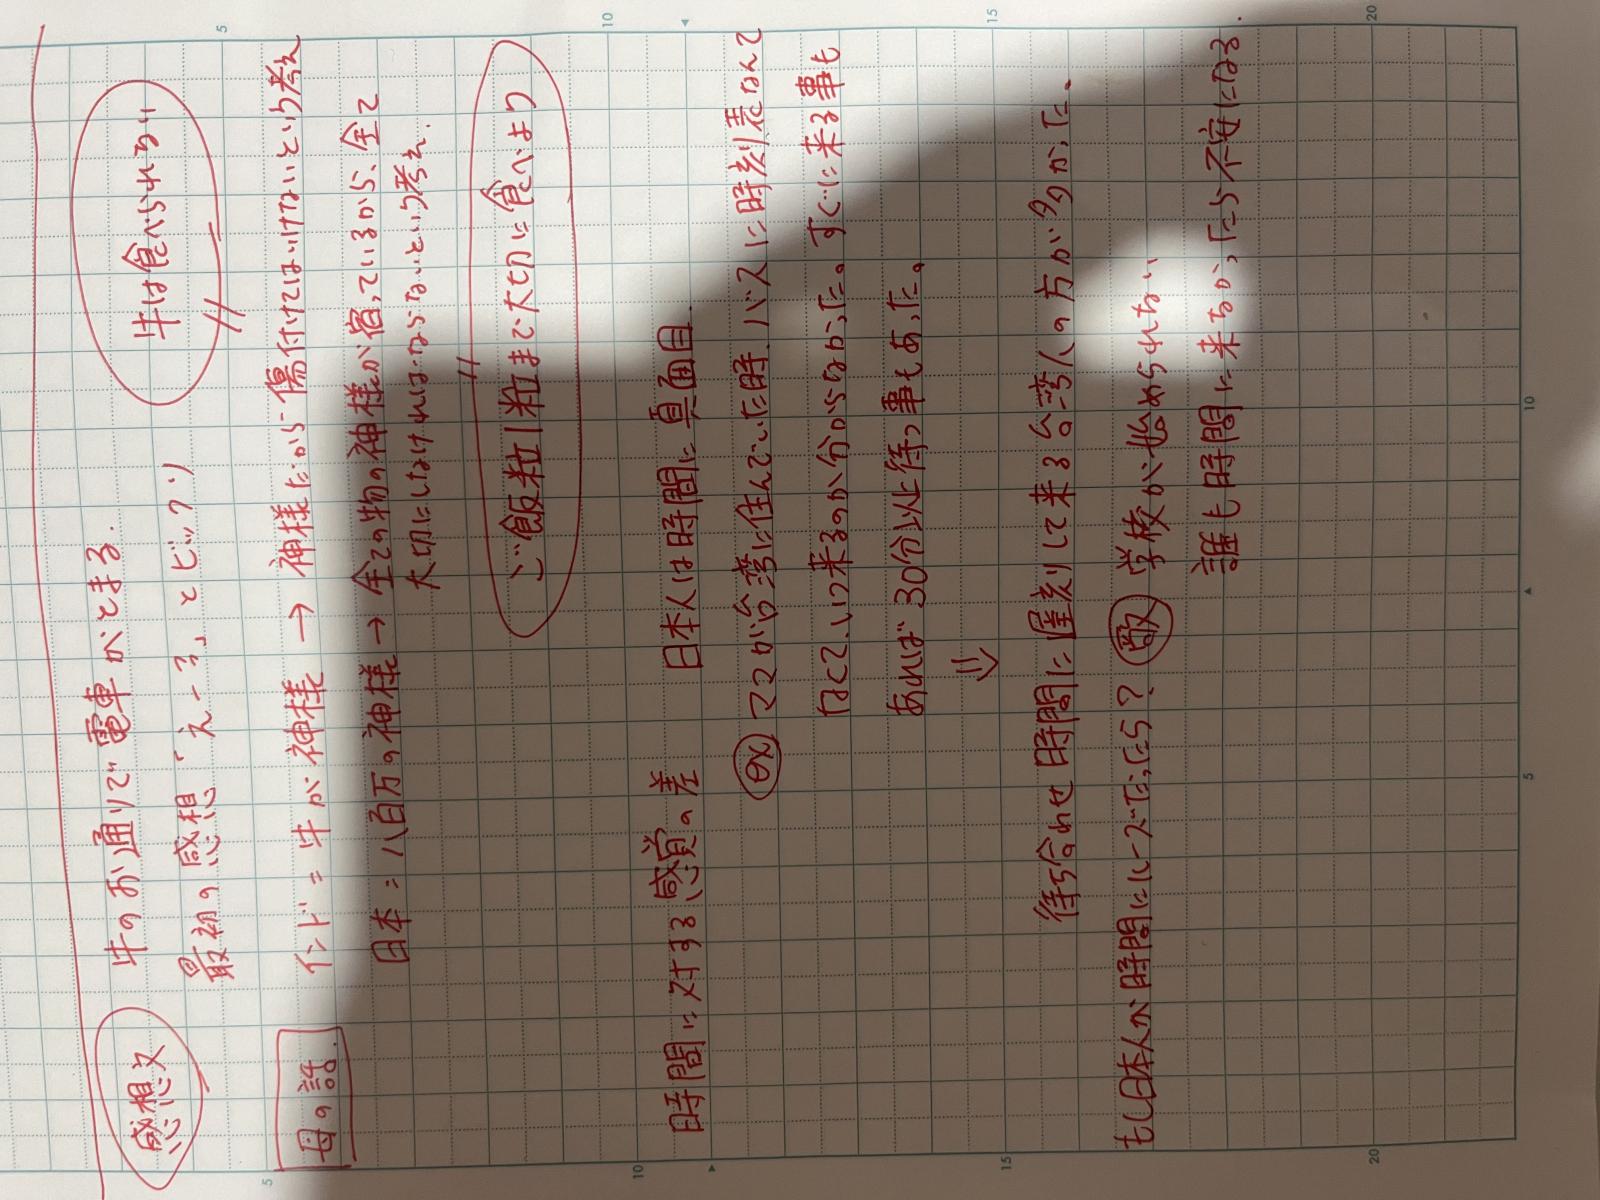 感想文
牛のお通りで電車がとまる.
最初の感想「えーっ」とビックリ
牛は食べられない
母の話.
インド = 牛が神様 → 神様だから傷付けてはいけないという考え
日本 = 八百万の神様 → 全ての物の神様が宿っているから、全て
大切にしなければならないという考え.
ご飯粒1粒まで大切に食べよう
時間に対する感覚の差
日本人は時間に真面目.
ex ママが台湾に住んでいた時、バスに時刻表なんて
なくて、いつ来るのか分からなかった。すぐに来る事も
あれば30分以上待つ事もあった。
⇓
待ち合わせ時間に遅刻して来る台湾人の方が多かった。
もし日本人が時間にルーズだったら?
学校が始められない
誰も時間に来なかったら不安になる.
5
10
15
20
5
10
15
20
5
10